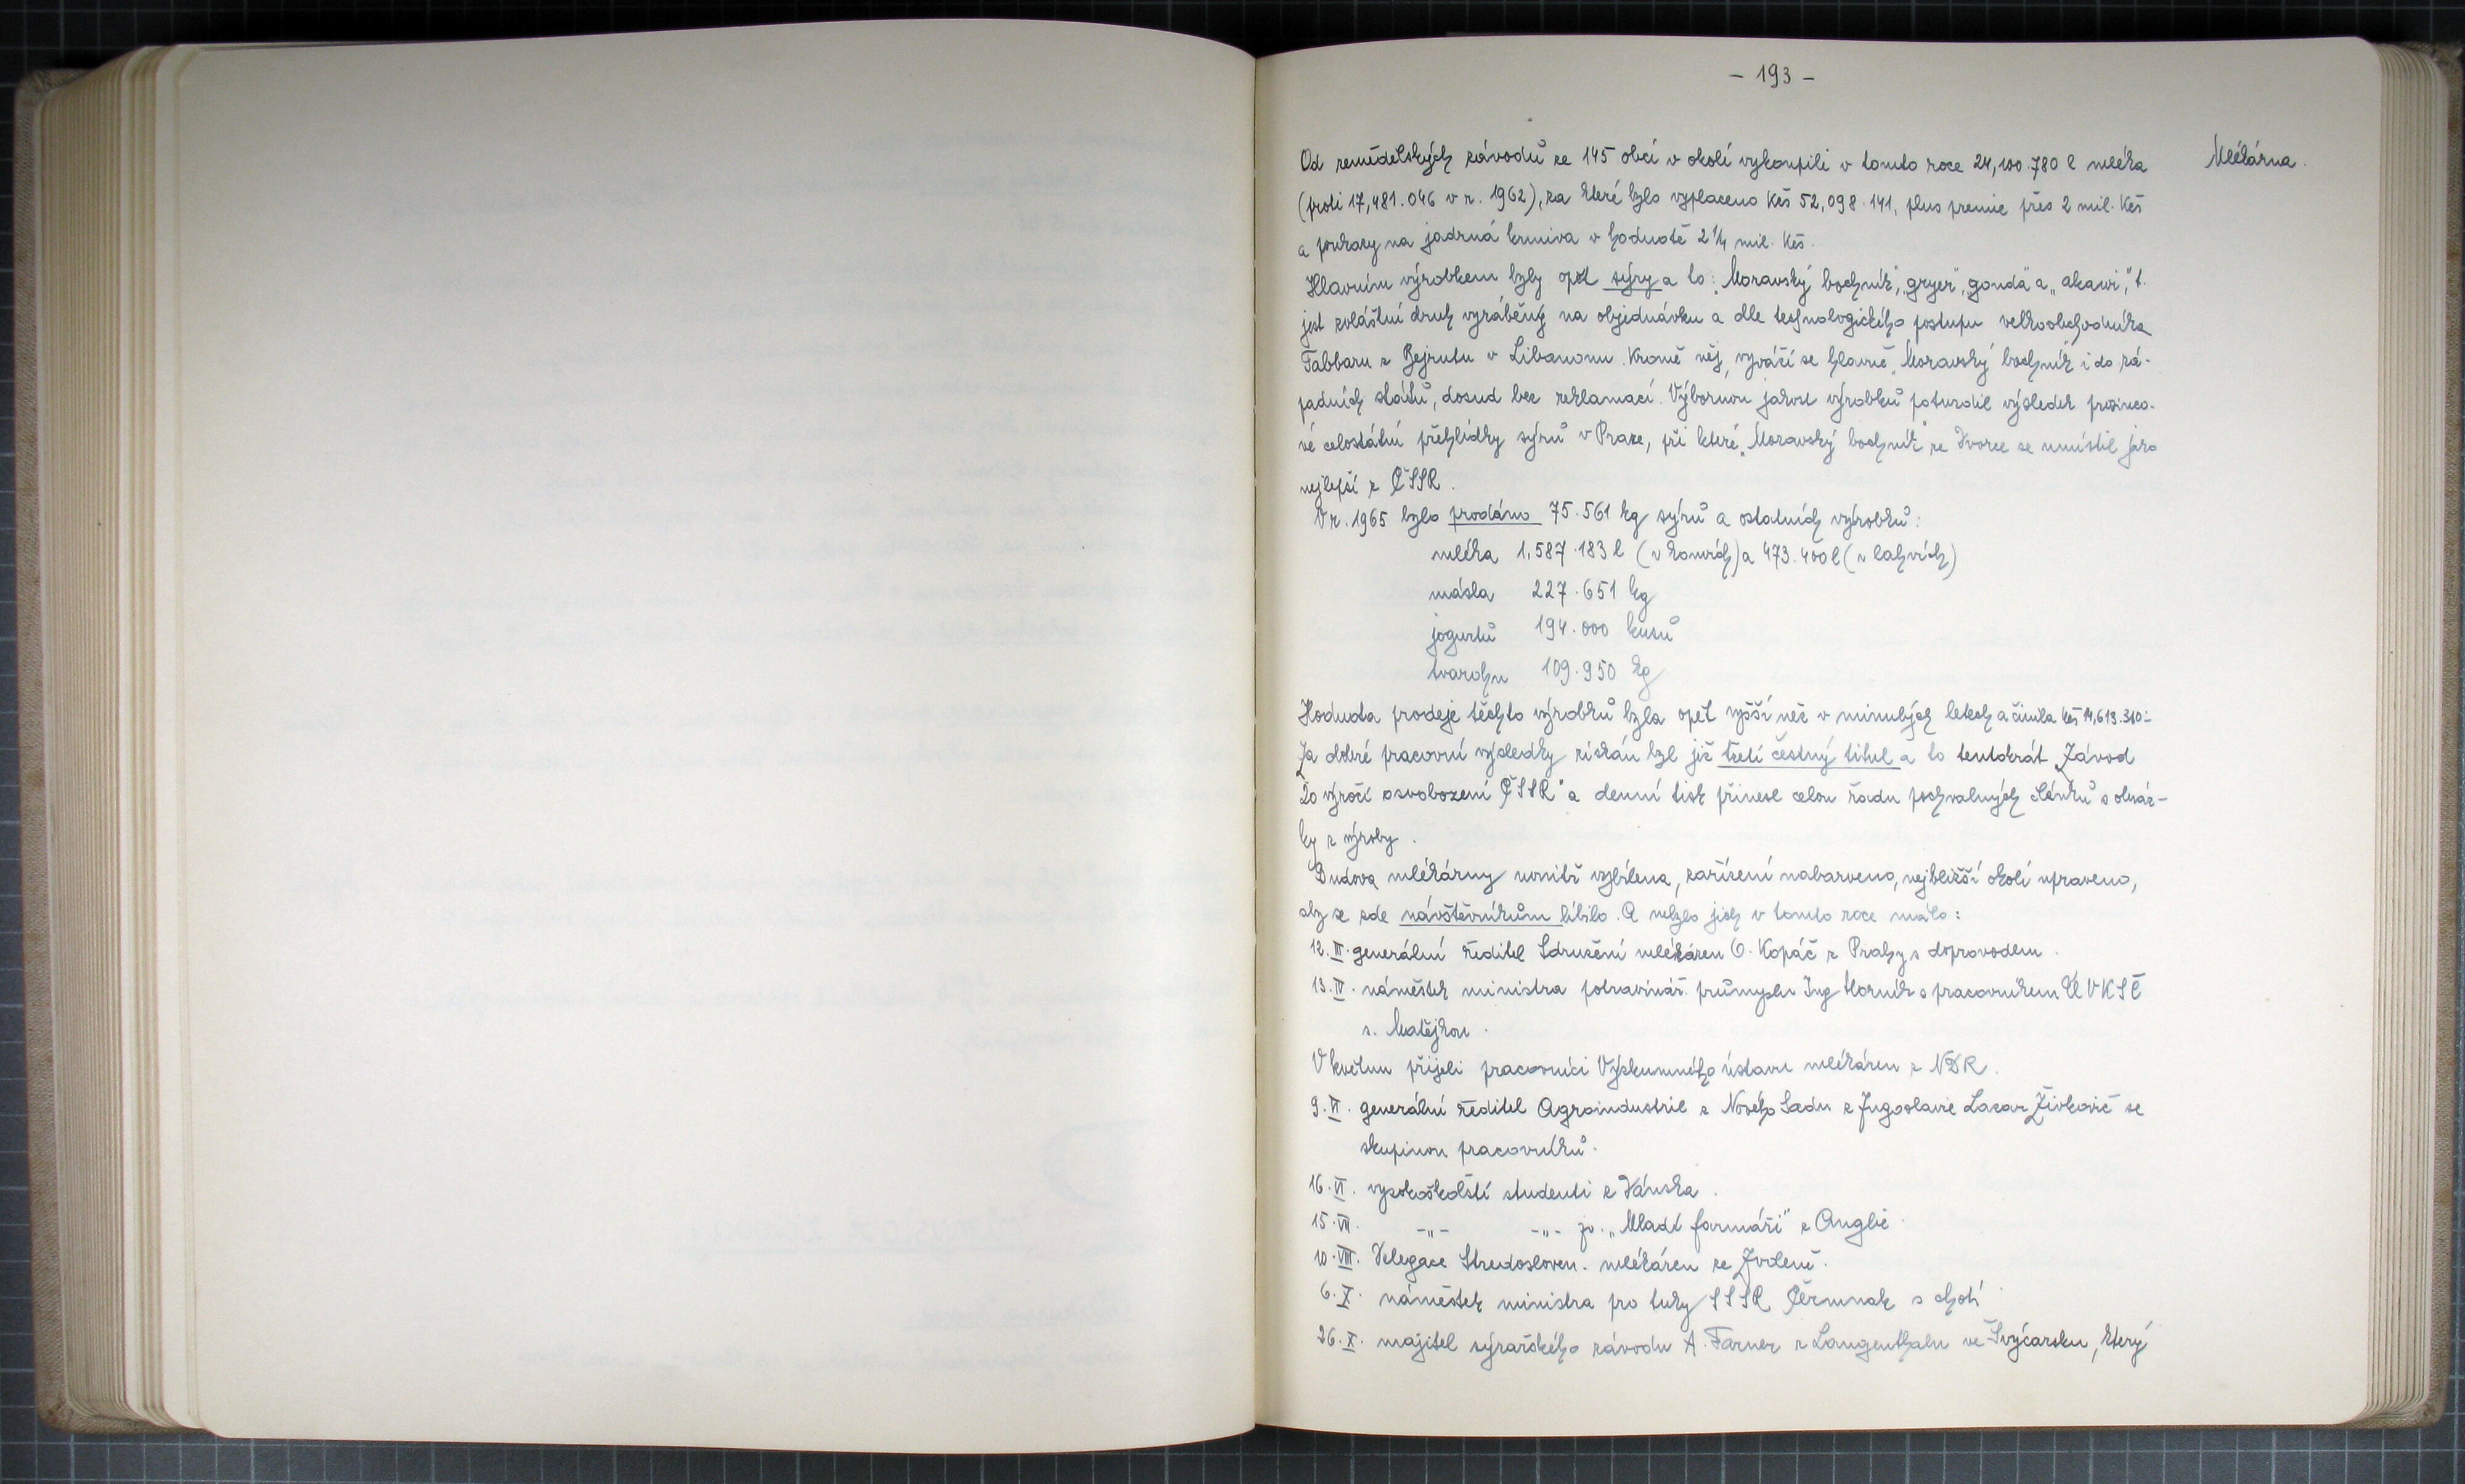 - 193 -
Od zemědělských závodů ze 145 obcí v okolí vykoupili v tomto roce 24,100.780 l mléka
Mlékárna.
(proti 17,481.046 v r. 1962), za které bylo vyplaceno Kčs 52,098.141, plus premie přes 2 mil. Kčs
a poukazy na jadrná krmiva v hodnotě 2 1/4 mil. Kčs.
Hlavním výrobkem byly opět sýry a to: „Moravský bochník", „gryer", „gouda" a „akawi", t.
jest zvláštní druh vyráběný na objednávku a dle technologického postupu velkoobchodníka
Tabbaru z Bejrutu v Libanonu. Kromě něj, vyváží se hlavně „Moravský bochník" i do zá-
padních států, dosud bez reklamací. Výbornou jakost výrobků potvrdil výsledek prosinco-
vé celostátní přehlídky sýrů v Praze, při které „Moravský bochník" ze Dvorce se umístil jako
nejlepší z ČSSR.
V r. 1965 bylo prodáno 75.561 kg sýrů a ostatních výrobků:
mléka 1,587.183 l (v konvích) a 473.400 l (v lahvích)
másla 227.651 kg
jogurtů 194.000 kusů
tvarohu 109.950 kg
Hodnota prodeje těchto výrobků byla opět vyšší než v minulých letech a činila Kčs 14,613.310.-
Za dobré pracovní výsledky získán byl již třetí čestný titul a to tentokrát „Závod
20 výročí osvobození ČSSR" a denní tisk přinesl celou řadu pochvalných článků s obráz-
ky z výroby.
Budova mlékárny uvnitř vybílena, zařízení nabarveno, nejbližší okolí upraveno,
aby se zde návštěvníkům líbilo. A nebylo jich v tomto roce málo:
12. III. generální ředitel Sdružení mlékáren O. Kopáč z Prahy s doprovodem.
13. IV. náměstek ministra potravinář. průmyslu Ing Horník s pracovníkem ÚV KSČ
s. Matějkou.
V květnu přijeli pracovníci Výzkumného ústavu mlékáren z NDR.
9. VI. generální ředitel Agroindustrie z Nového Sadu z Jugoslavie Lazar Živkovič se
skupinou pracovníků.
16. VI. vysokoškolští studenti z Dánska.
15. VII. -„- -„- zv. „Mladí farmáři" z Anglie.
10. VIII. Delegace Stredosloven. mlékáren ze Zvolena.
6. X. náměstek ministra pro tuky SSSR Čermnak s chotí.
26. X. majitel sýrařského závodu A. Farner z Langenthalu ve Švýcarsku, který